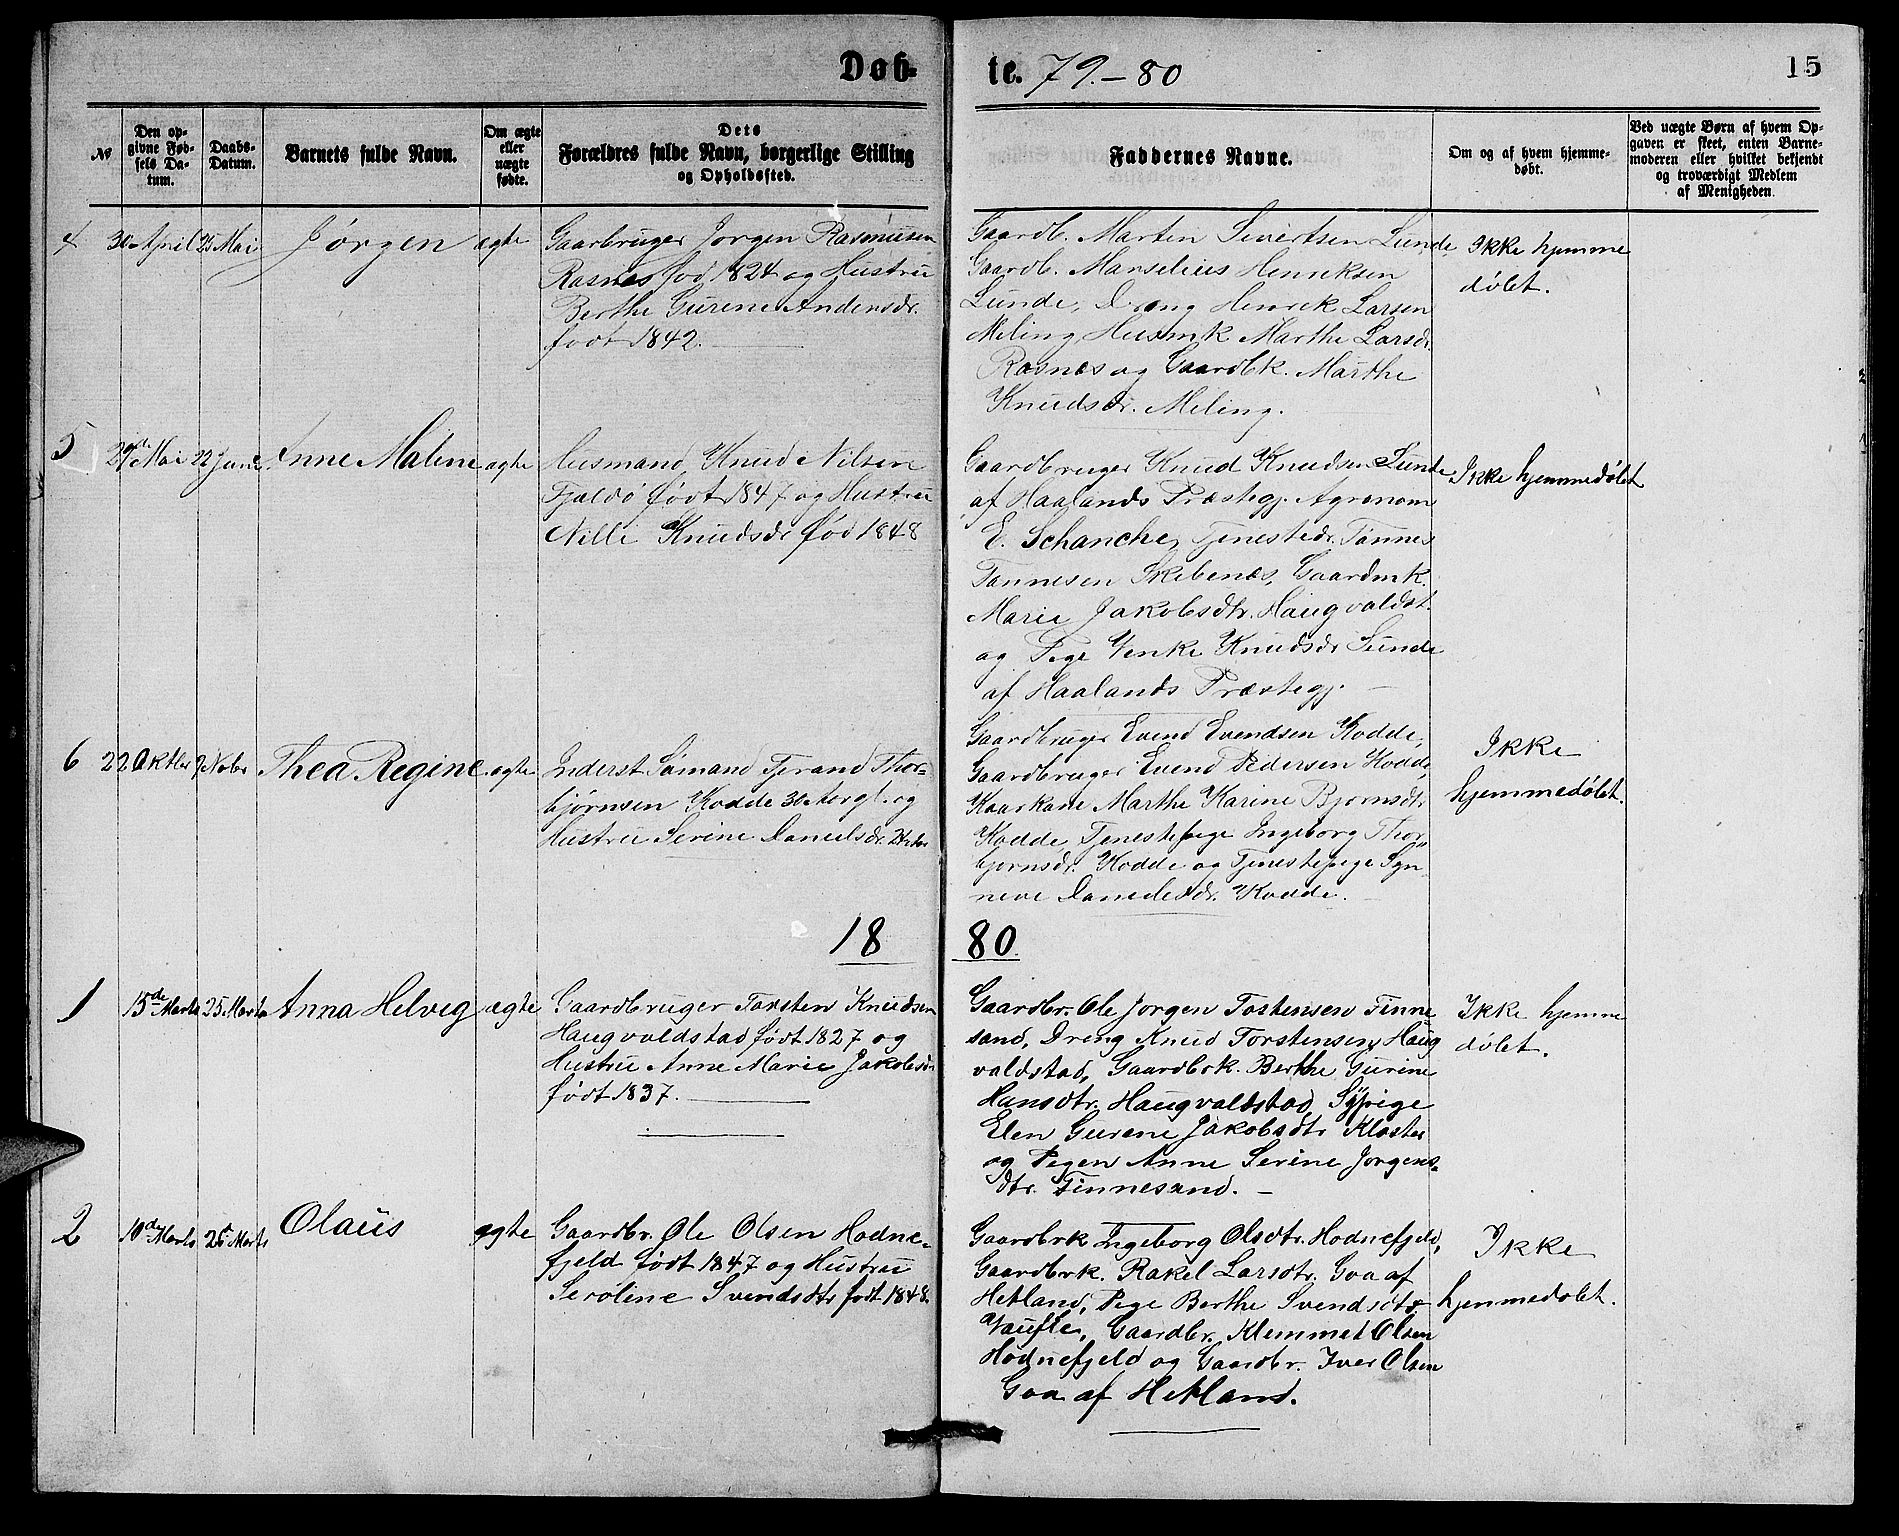 Døb-
te. 79.-80
15
№
Den op-
givne Fød-
sels Da-
tum.
Daabs-
Datum.
Barnets fulde Navn.
Om ægte
eller
uægte
fødte.
Dets
Forældres fulde Navn, borgerlige Stilling
og Opholdssted.
Faddernes Navne.
Om og af hvem hjemme-
døbt.
Ved uægte Børn af hvem Op-
gaven er skeet, enten Barne-
moderen eller hvilket bekjendt
og troværdigt Medlem
af Menigheden.
4 30 April 25 Mai Jörgen ægte
Gaarbruger Jorgen Rasmusen
Rasnes fod 1824 og Hustru
Berthe Gurene Andersdr.
födt 1842.
Gaardb. Marten Sivertsen Lunde
Gaardb. Marselius Henriksen
Lunde, Dreng Henrek Larsen
Meling Husmk Marthe Larsdr.
Rasnes og Gaardbk. Marthe
Knudsdr. Meling.
Ikke hjemme
döbt.
5 29de Mai 22 June Anne Maline ægte
Husmand, Knud Nilsen
Fjøldö födt 1847 og Hustru
Nilli Knudsdr föd 1848
Gaardbruger Knud Knudsen Lunde
af Haalands Præstegj. Agronom
E. Schanche, Tjenestedr. Tönnes
Tönnesen Skebenes, Gaardmk.
Marie Jakobsdtr. Haugvaldst.
og Pege Venke Knudsdr Lunde
af Haalands Præstegj.
Ikke hjemmedöbt
6 22 Oktbr 9 Novbr Thea Regine ægte
Inderst Sömand Tjerand Thor-
bjørnsen Kodde 30 Aar gl. og
Hustru Serine Danielsdr.
Gaardbruger Evend Evendsen Kodde,
Gaardbruger Evend Pedersen Kodde,
Kaarkone Marthe Karine Bjornsdtr
Kodde, Tjenestepege Ingeborg Thor-
bjornsdr. Kodde og Tjenestepege Syn-
neve Danielsdr. Kodde.
Ikke
hjemmedöbt.
18 80.
1 15de Marts 25 Marts Anna Helvig ægte
Gaardbruger Torsten Knudsen
Haugvaldstad födt 1827 og
Hustru Anne Marie Jakobsdr
födt 1837.
Gaardbr. Ole Jorgen Tostensen Finne
sand, Dreng Knud Torstensen Haug
valdstad, Gaardbrk. Berthe Gurine
Hansdtr. Haugvaldstad,
Elen Gurene Jakobsdtr Kloster
og Pegen Anne Serine Jorgens-
dtr. Finnesand.
Ikke hjemme
döbt.
2 10de Marts 26 Marts Olaus ægte
Gaardbr. Ole Olsen Hodne-
fjeld födt 1847 og Hustru
Seröline Svendsdtr födt 1848.
Gaardbrk Ingeborg Olsdtr. Hodnefjeld,
Gaardbrk. Rakel Larsdtr. Goa af
Hetland, Pege Berthe Svendsdtr
Gaardbr. Klemmet Olsen
Hodnefjeld og Gaardbr. Iver Olsen
Goa af Hetland.
Ikke
hjemmedobt.